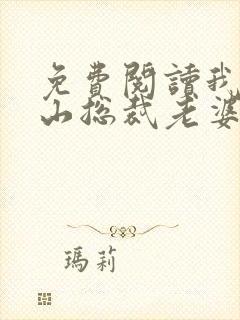 免費閱讀我
山総裁老婆
瑪莉